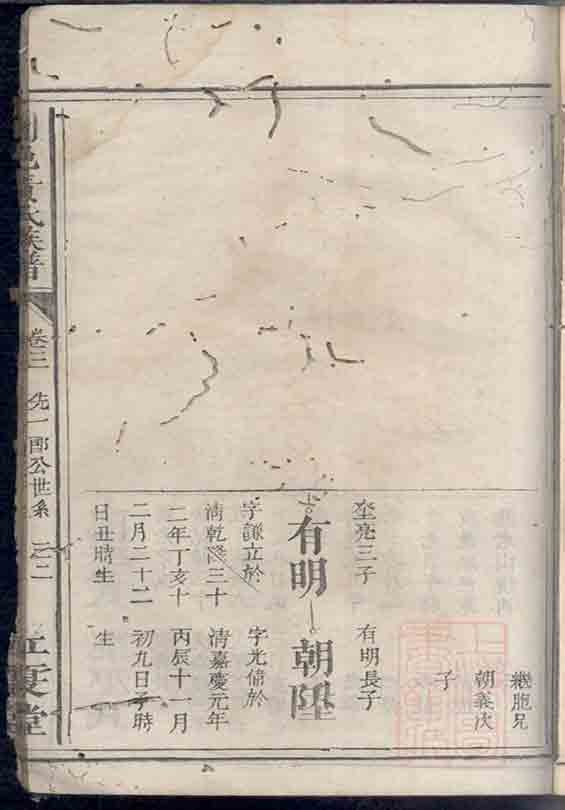 繼胞兄
朝義次
子
坙亮三子
有明
字謙立於
清乾隆三十
二年丁亥十
二月二十二
日丑時生
有明長子
朝陞
字光脩於
清嘉慶元年
丙辰十一月
初九日子時
生
黃氏族譜
卷三
先一郎公世系
江夏堂